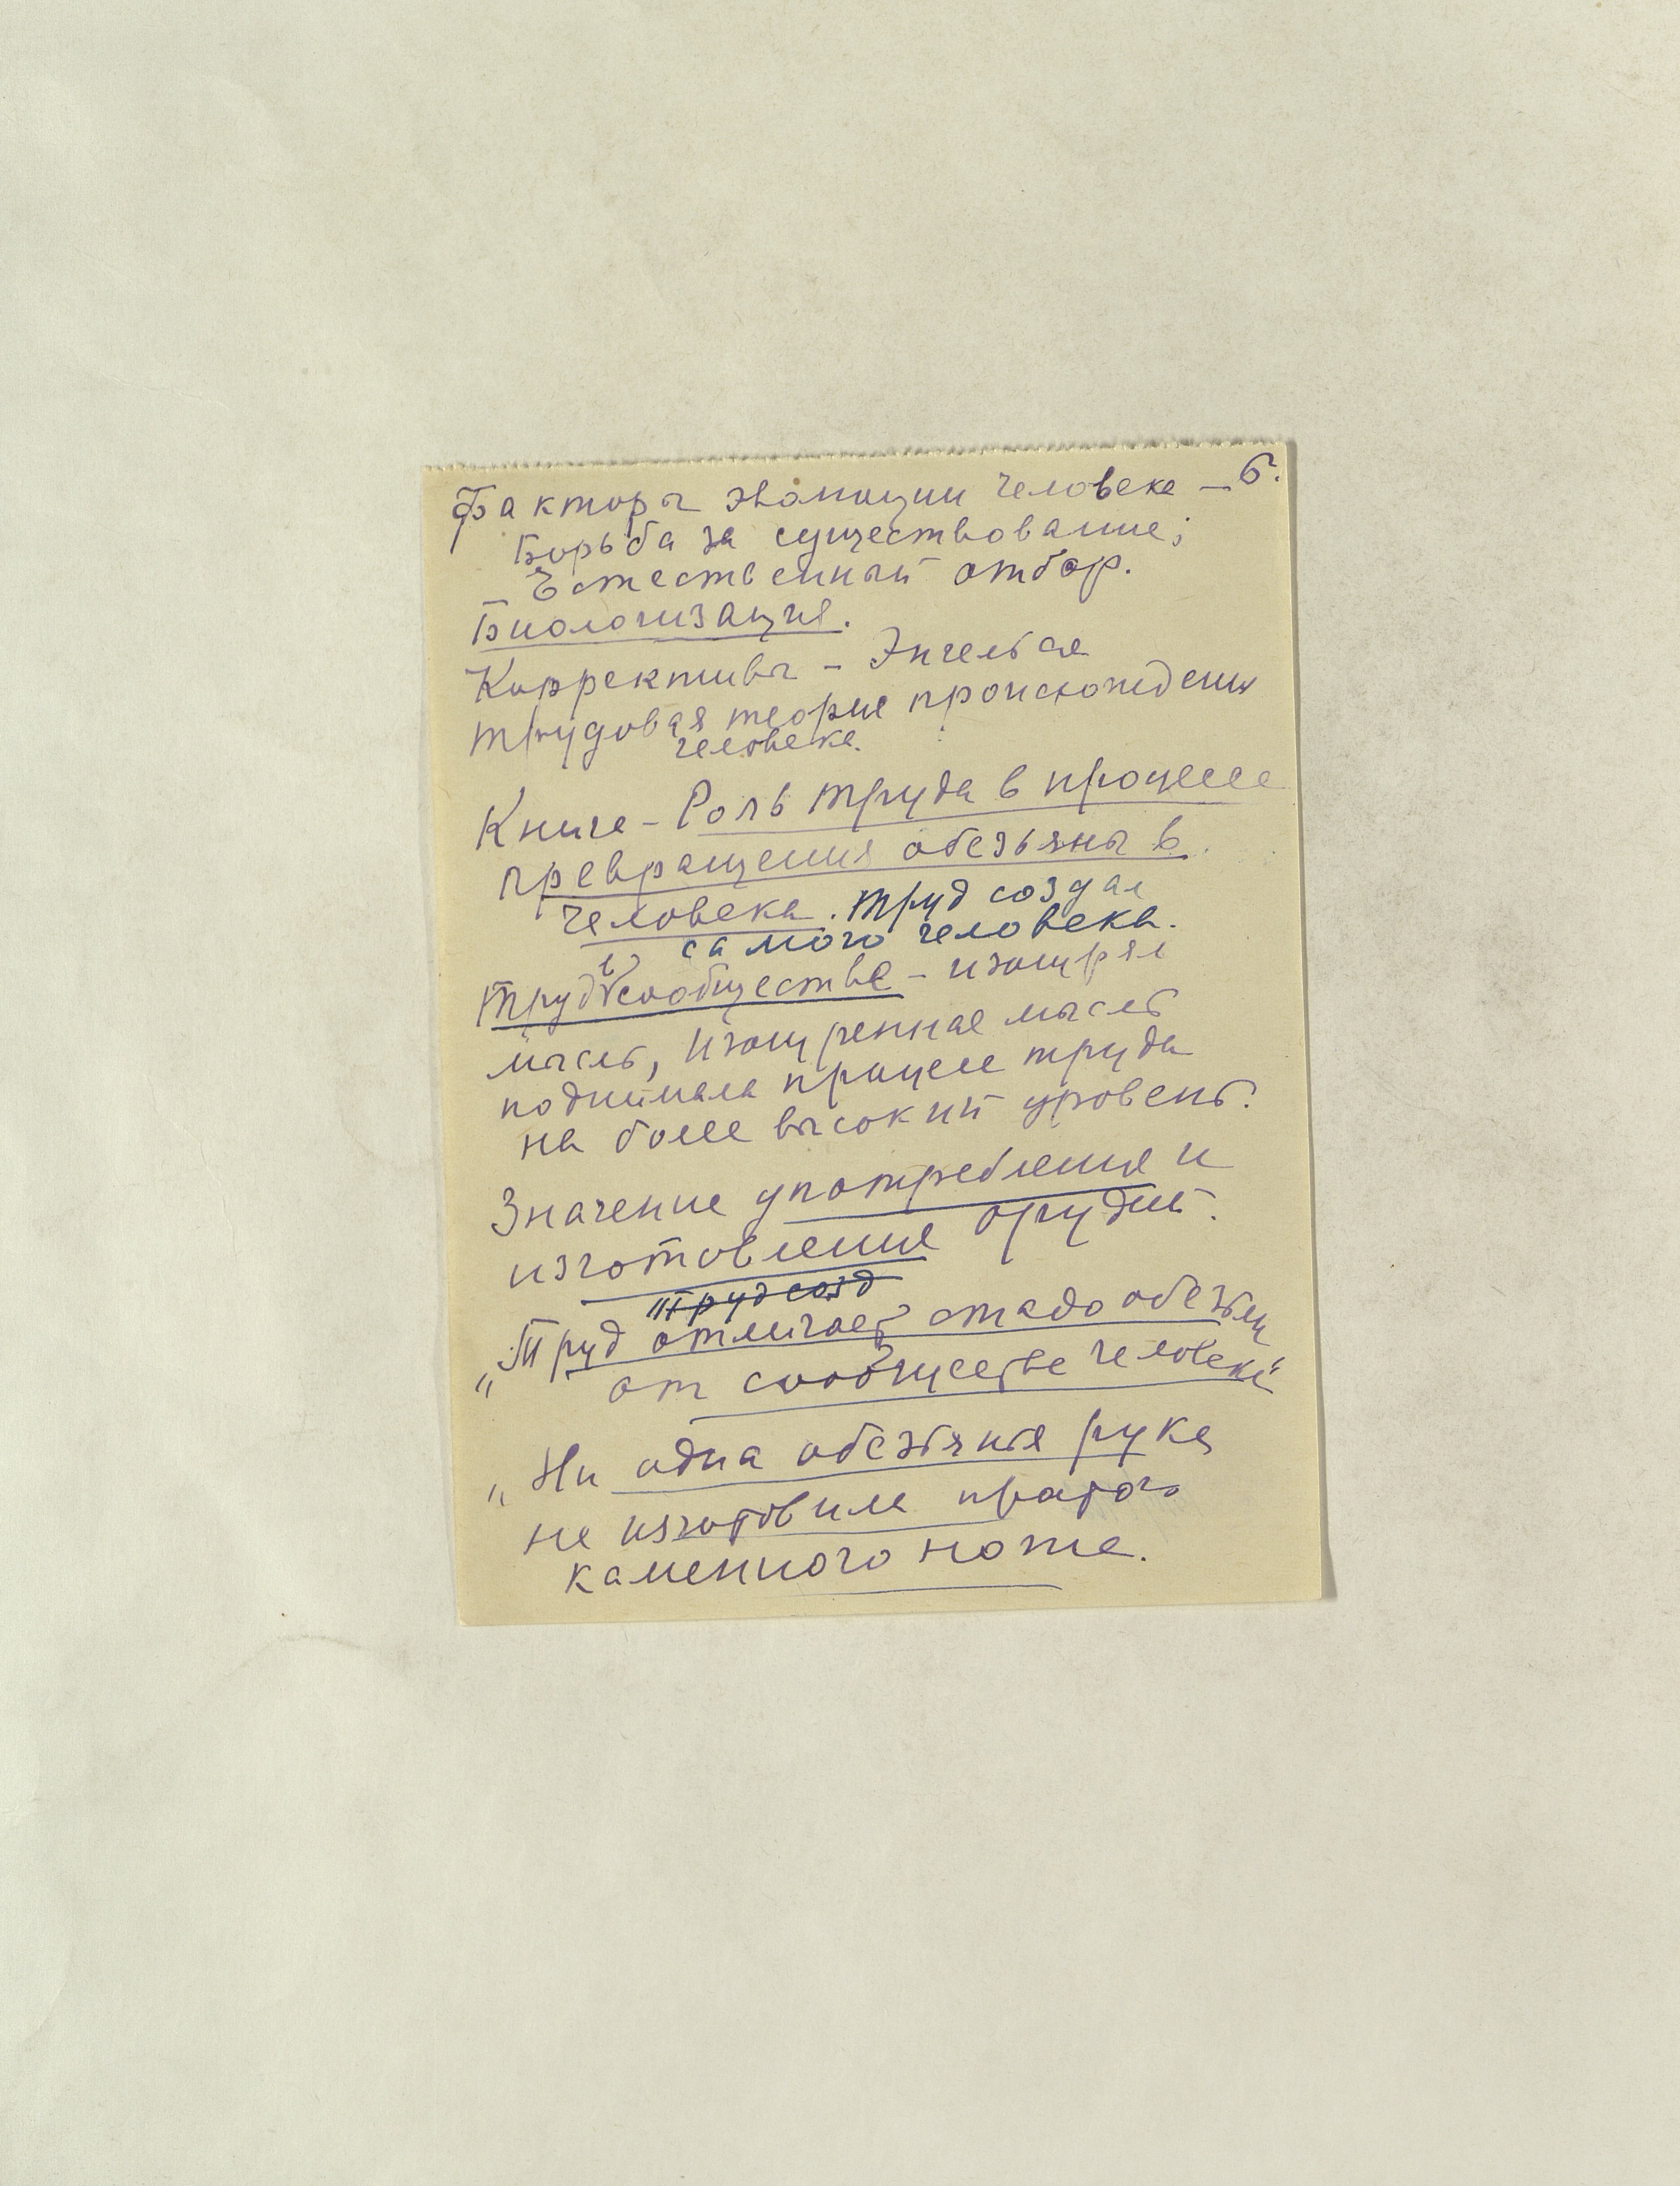 Факторы эволюции человека – 6.
Борьба за существование;
– Естественный отбор.
Биологизация.
Коррективы – Энгельса
трудовая теория происхождения
человека.
Книга – Роль труда в процессе
превращения обезьяны в
человека. Труд создал
самого человека.
Труд в сообществе – изощрял
мысль, изощренная мысль
поднимала процесс труда
на более высокий уровень.
Значение употребления и
изготовления орудий.
"Труд созд
"Труд отличает стадо обезьян
от сообщества человека"
"Ни одна обезьянья рука
не изготовила простого
каменного ножа.